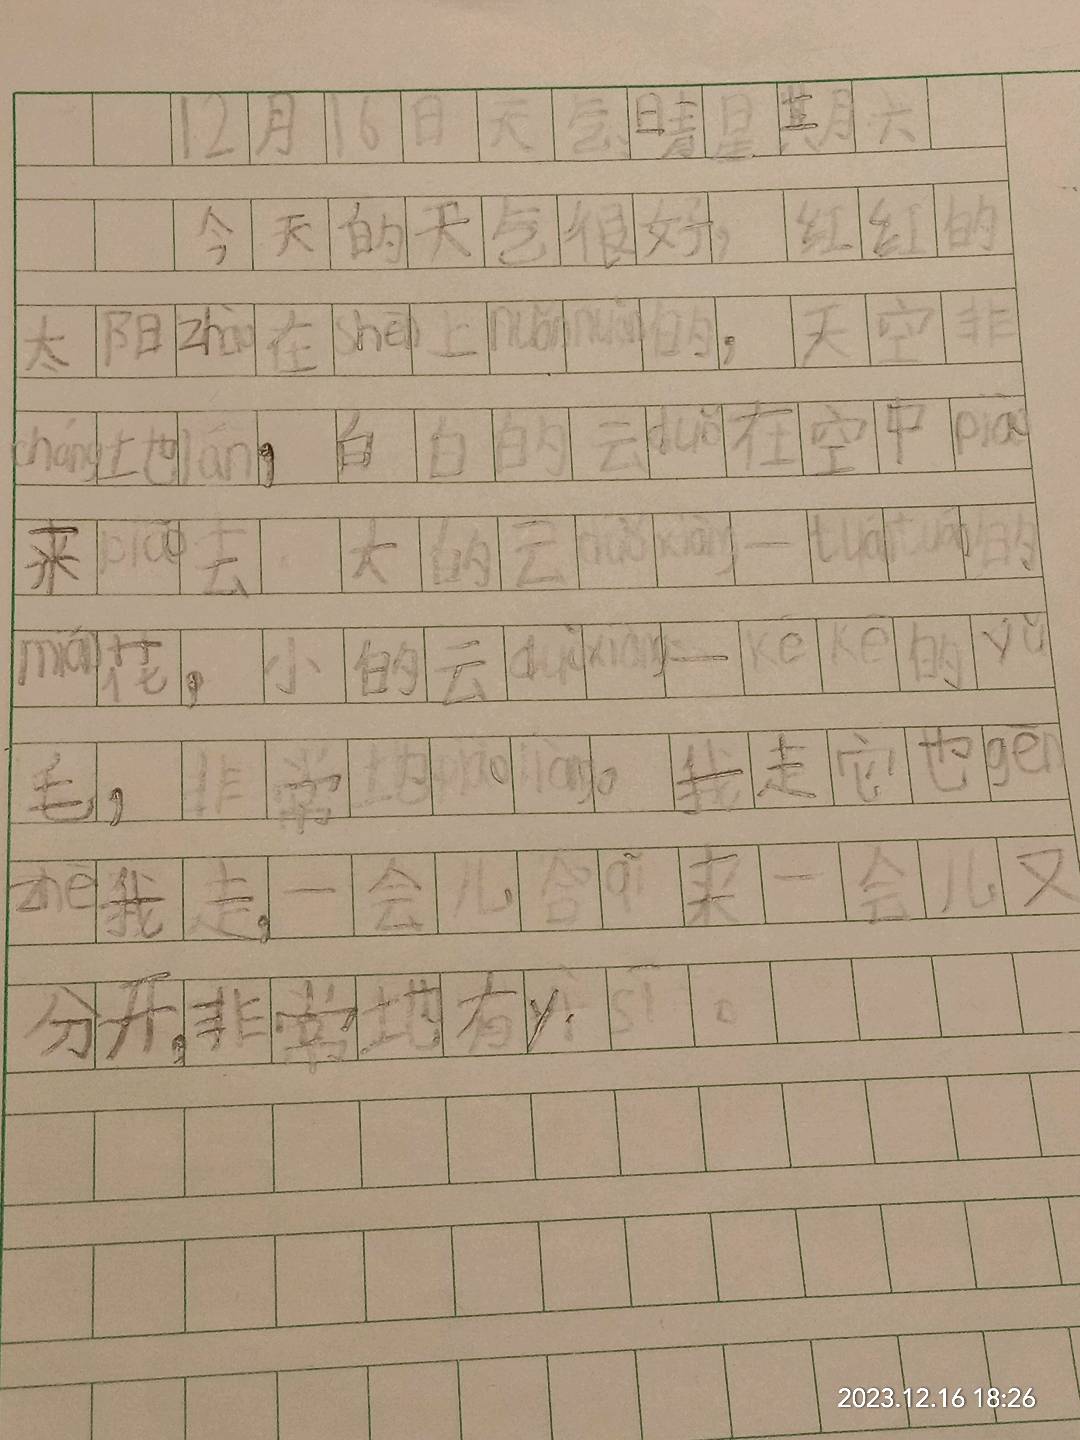 12月16日天气晴星期六
今天的天气很好，红红的
太阳zhào在shēn上nuǎnnuǎn的，天空非
cháng地lán，白白的云duǒ在空中piāo
来piāo去。大的云duǒxiàng一tuántuán的
mián花，小的云duǒxiàng一kēkē的yǔ
毛，非常地piàoliàng。我走它也gēn
zhē我走，一会儿合qǐ来一会儿又
分开，非常地有yìsī。
2023.12.16 18:26